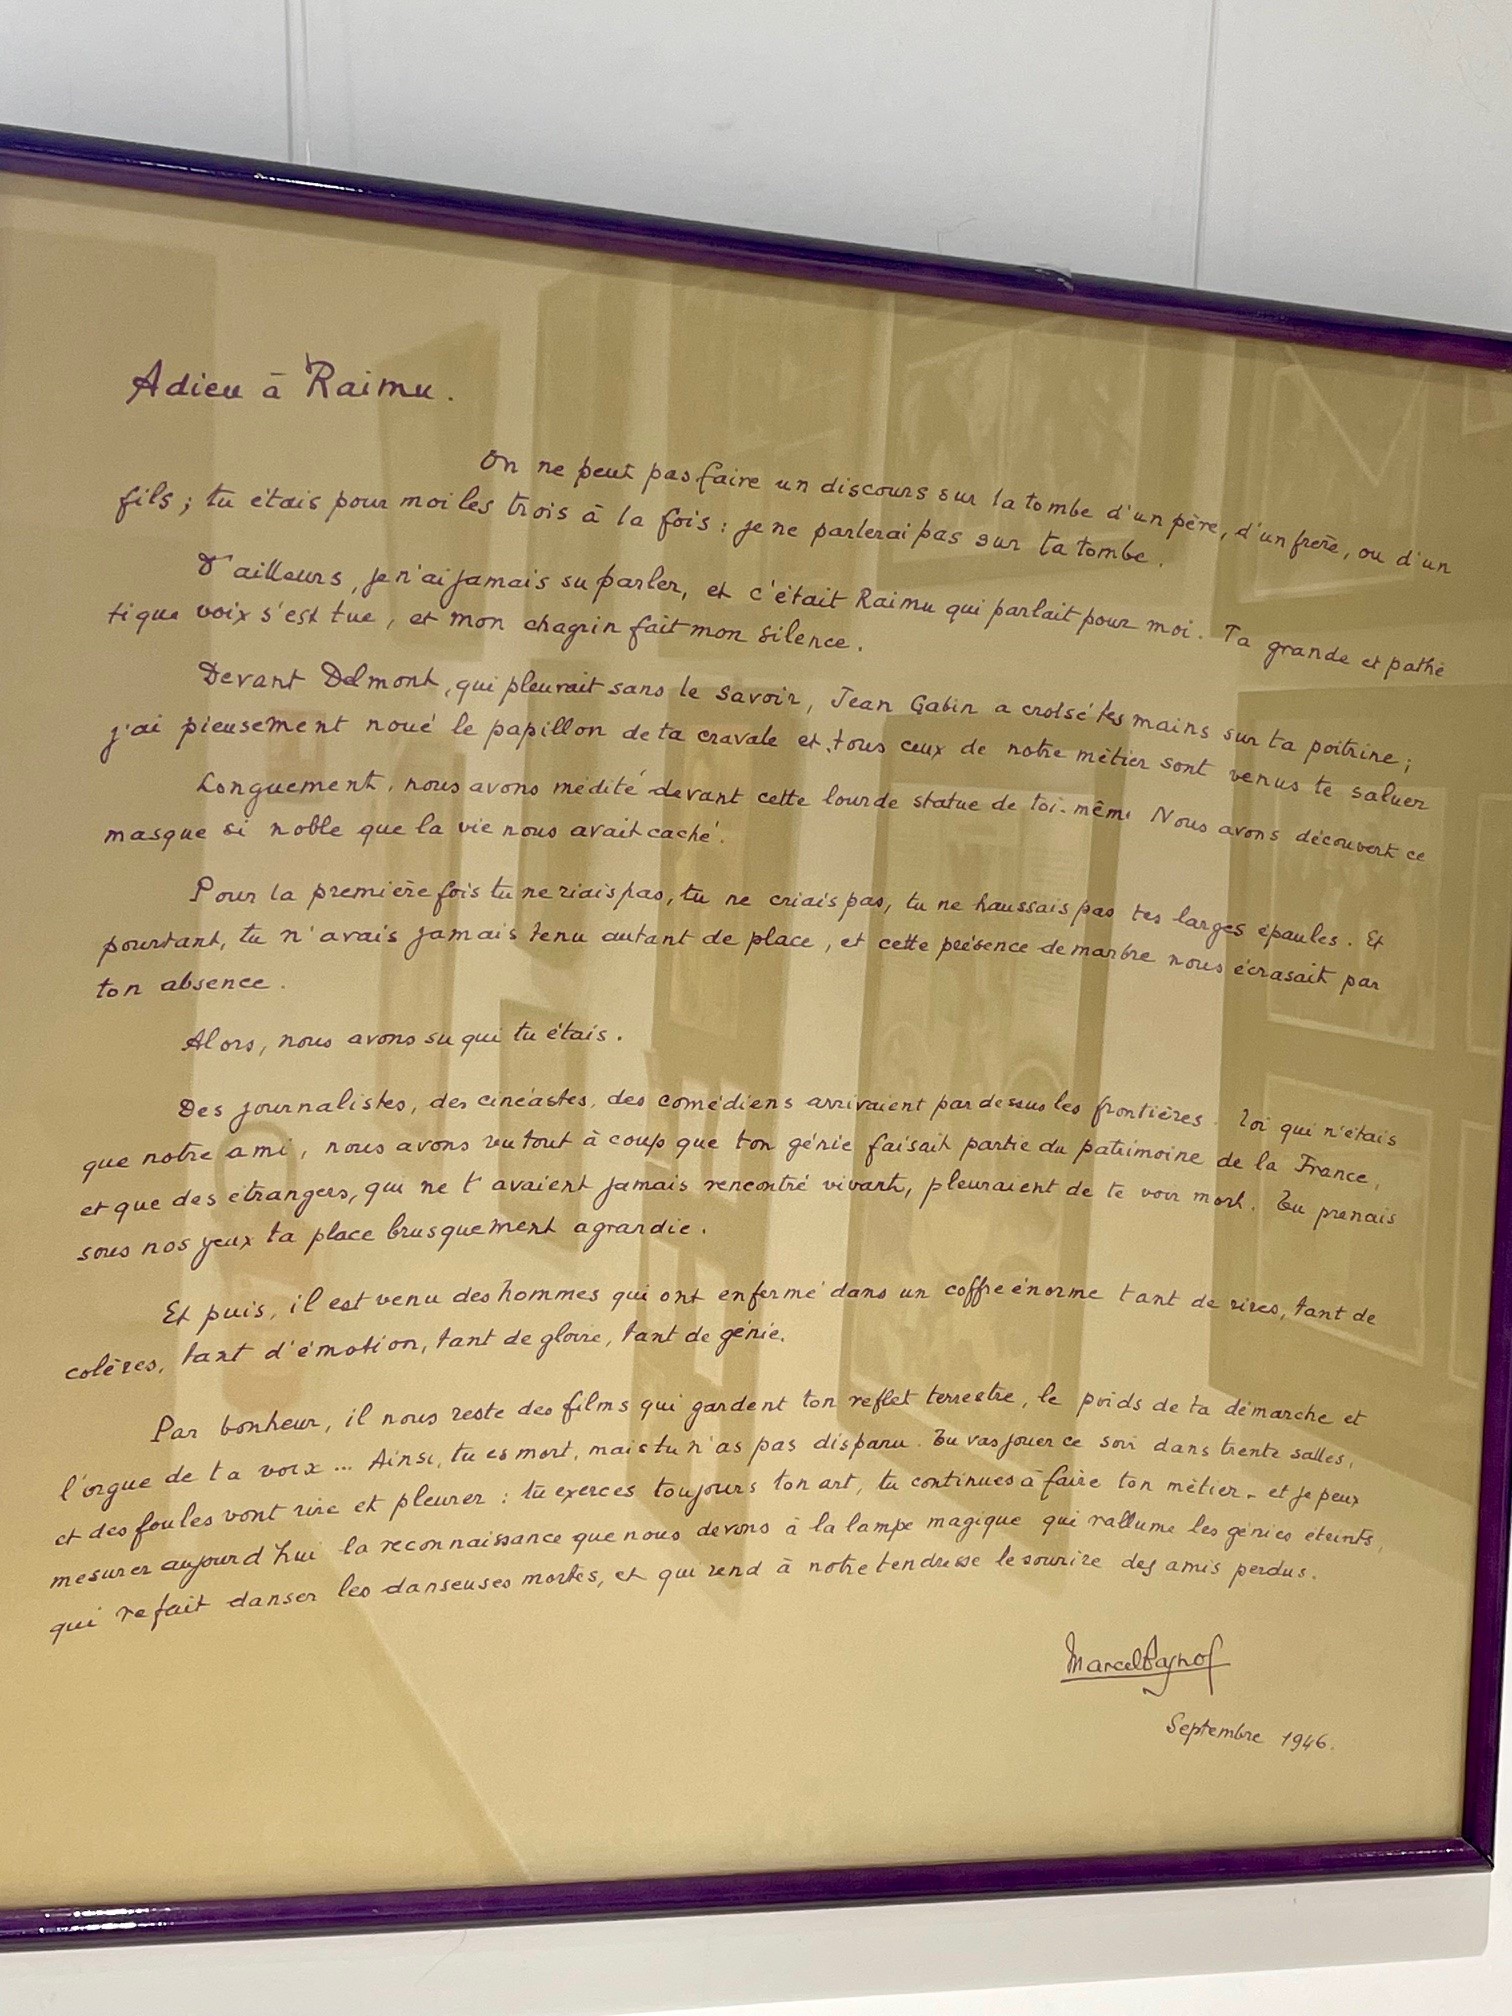 Adieu à Raimu.
On ne peut pas faire un discours sur la tombe d'un père, d'un frère, ou d'un
fils ; tu étais pour moi les trois à la fois : je ne parlerai pas sur ta tombe.
D'ailleurs, je n'ai jamais su parler, et c'était Raimu qui parlait pour moi. Ta grande et pathé
tique voix s'est tue, et mon chagrin fait mon silence.
Devant Delmont, qui pleurait sans le savoir, Jean Gabin a croisé tes mains sur ta poitrine ;
j'ai pieusement noué le papillon de ta cravate et tous ceux de notre métier sont venus te saluer
Longuement, nous avons médité devant cette lourde statue de toi-même Nous avons découvert ce
masque si noble que la vie nous avait caché.
Pour la première fois tu ne riais pas, tu ne criais pas, tu ne haussais pas tes larges épaules. Et
pourtant, tu n'avais jamais tenu autant de place, et cette présence de marbre nous écrasait par
ton absence.
Alors, nous avons su qui tu étais.
Des journalistes, des cinéastes, des comédiens arrivaient par dessus les frontières. Toi qui n'étais
que notre ami, nous avons vu tout à coup que ton génie faisait partie du patrimoine de la France,
et que des étrangers, qui ne t'avaient jamais rencontré vivant, pleuraient de te voir mort. Tu prenais
sous nos yeux ta place brusquement agrandie.
Et puis, il est venu des hommes qui ont enfermé dans un coffre énorme tant de rires, tant de
colères, tant d'émotion, tant de gloire, tant de génie.
Par bonheur, il nous reste des films qui gardent ton reflet terrestre, le poids de ta démarche et
l'orgue de ta voix... Ainsi, tu es mort, mais tu n'as pas disparu. Tu vas jouer ce soir dans trente salles,
et des foules vont rire et pleurer : tu exerces toujours ton art, tu continues à faire ton métier - et je peux
mesurer aujourd'hui la reconnaissance que nous devons à la lampe magique qui rallume les génies éteints,
qui refait danser les danseuses mortes, et qui rend à notre tendresse le sourire des amis perdus.
Marcel Pagnol
Septembre 1946.